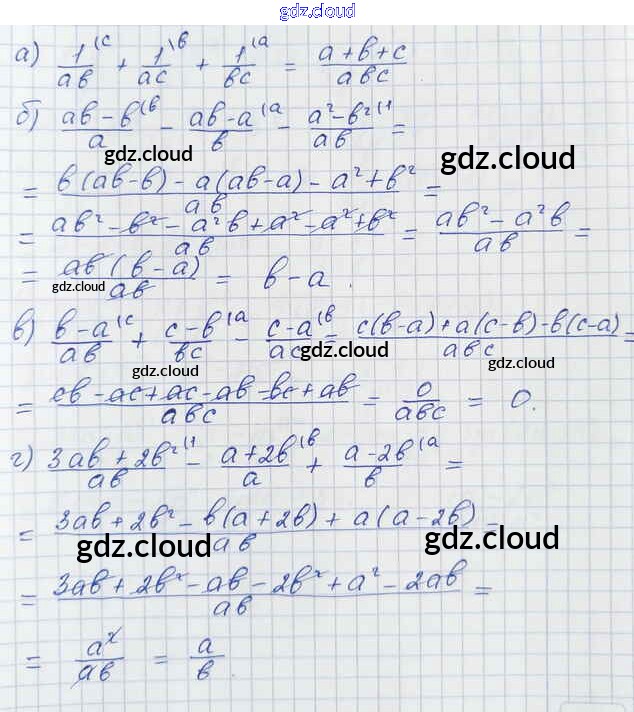 gdz.cloud
а) 1\c/ab + 1\b/ac + 1\a/bc = (a+b+c)/abc
б) (ab-b)\b/a - (ab-a)\a/b - (a²-b²)\1/ab =
gdz.cloud gdz.cloud
= (b(ab-b)-a(ab-a)-a²+b²)/ab =
= (ab²-b²-a²b+a²-a²+b²)/ab = (ab²-a²b)/ab =
= ab(b-a)/ab = b-a.
gdz.cloud
в) (b-a)\c/ab + (c-b)\a/bc - (c-a)\b/ac = (c(b-a)+a(c-b)-b(c-a))/abc =
gdz.cloud gdz.cloud
= (cb-ac+ac-ab-bc+ab)/abc = 0/abc = 0.
г) (3ab+2b²)\1/ab - (a+2b)\b/a + (a-2b)\a/b =
= (3ab+2b²-b(a+2b)+a(a-2b))/ab =
gdz.cloud gdz.cloud
= (3ab+2b²-ab-2b²+a²-2ab)/ab =
= a²/ab = a/b.